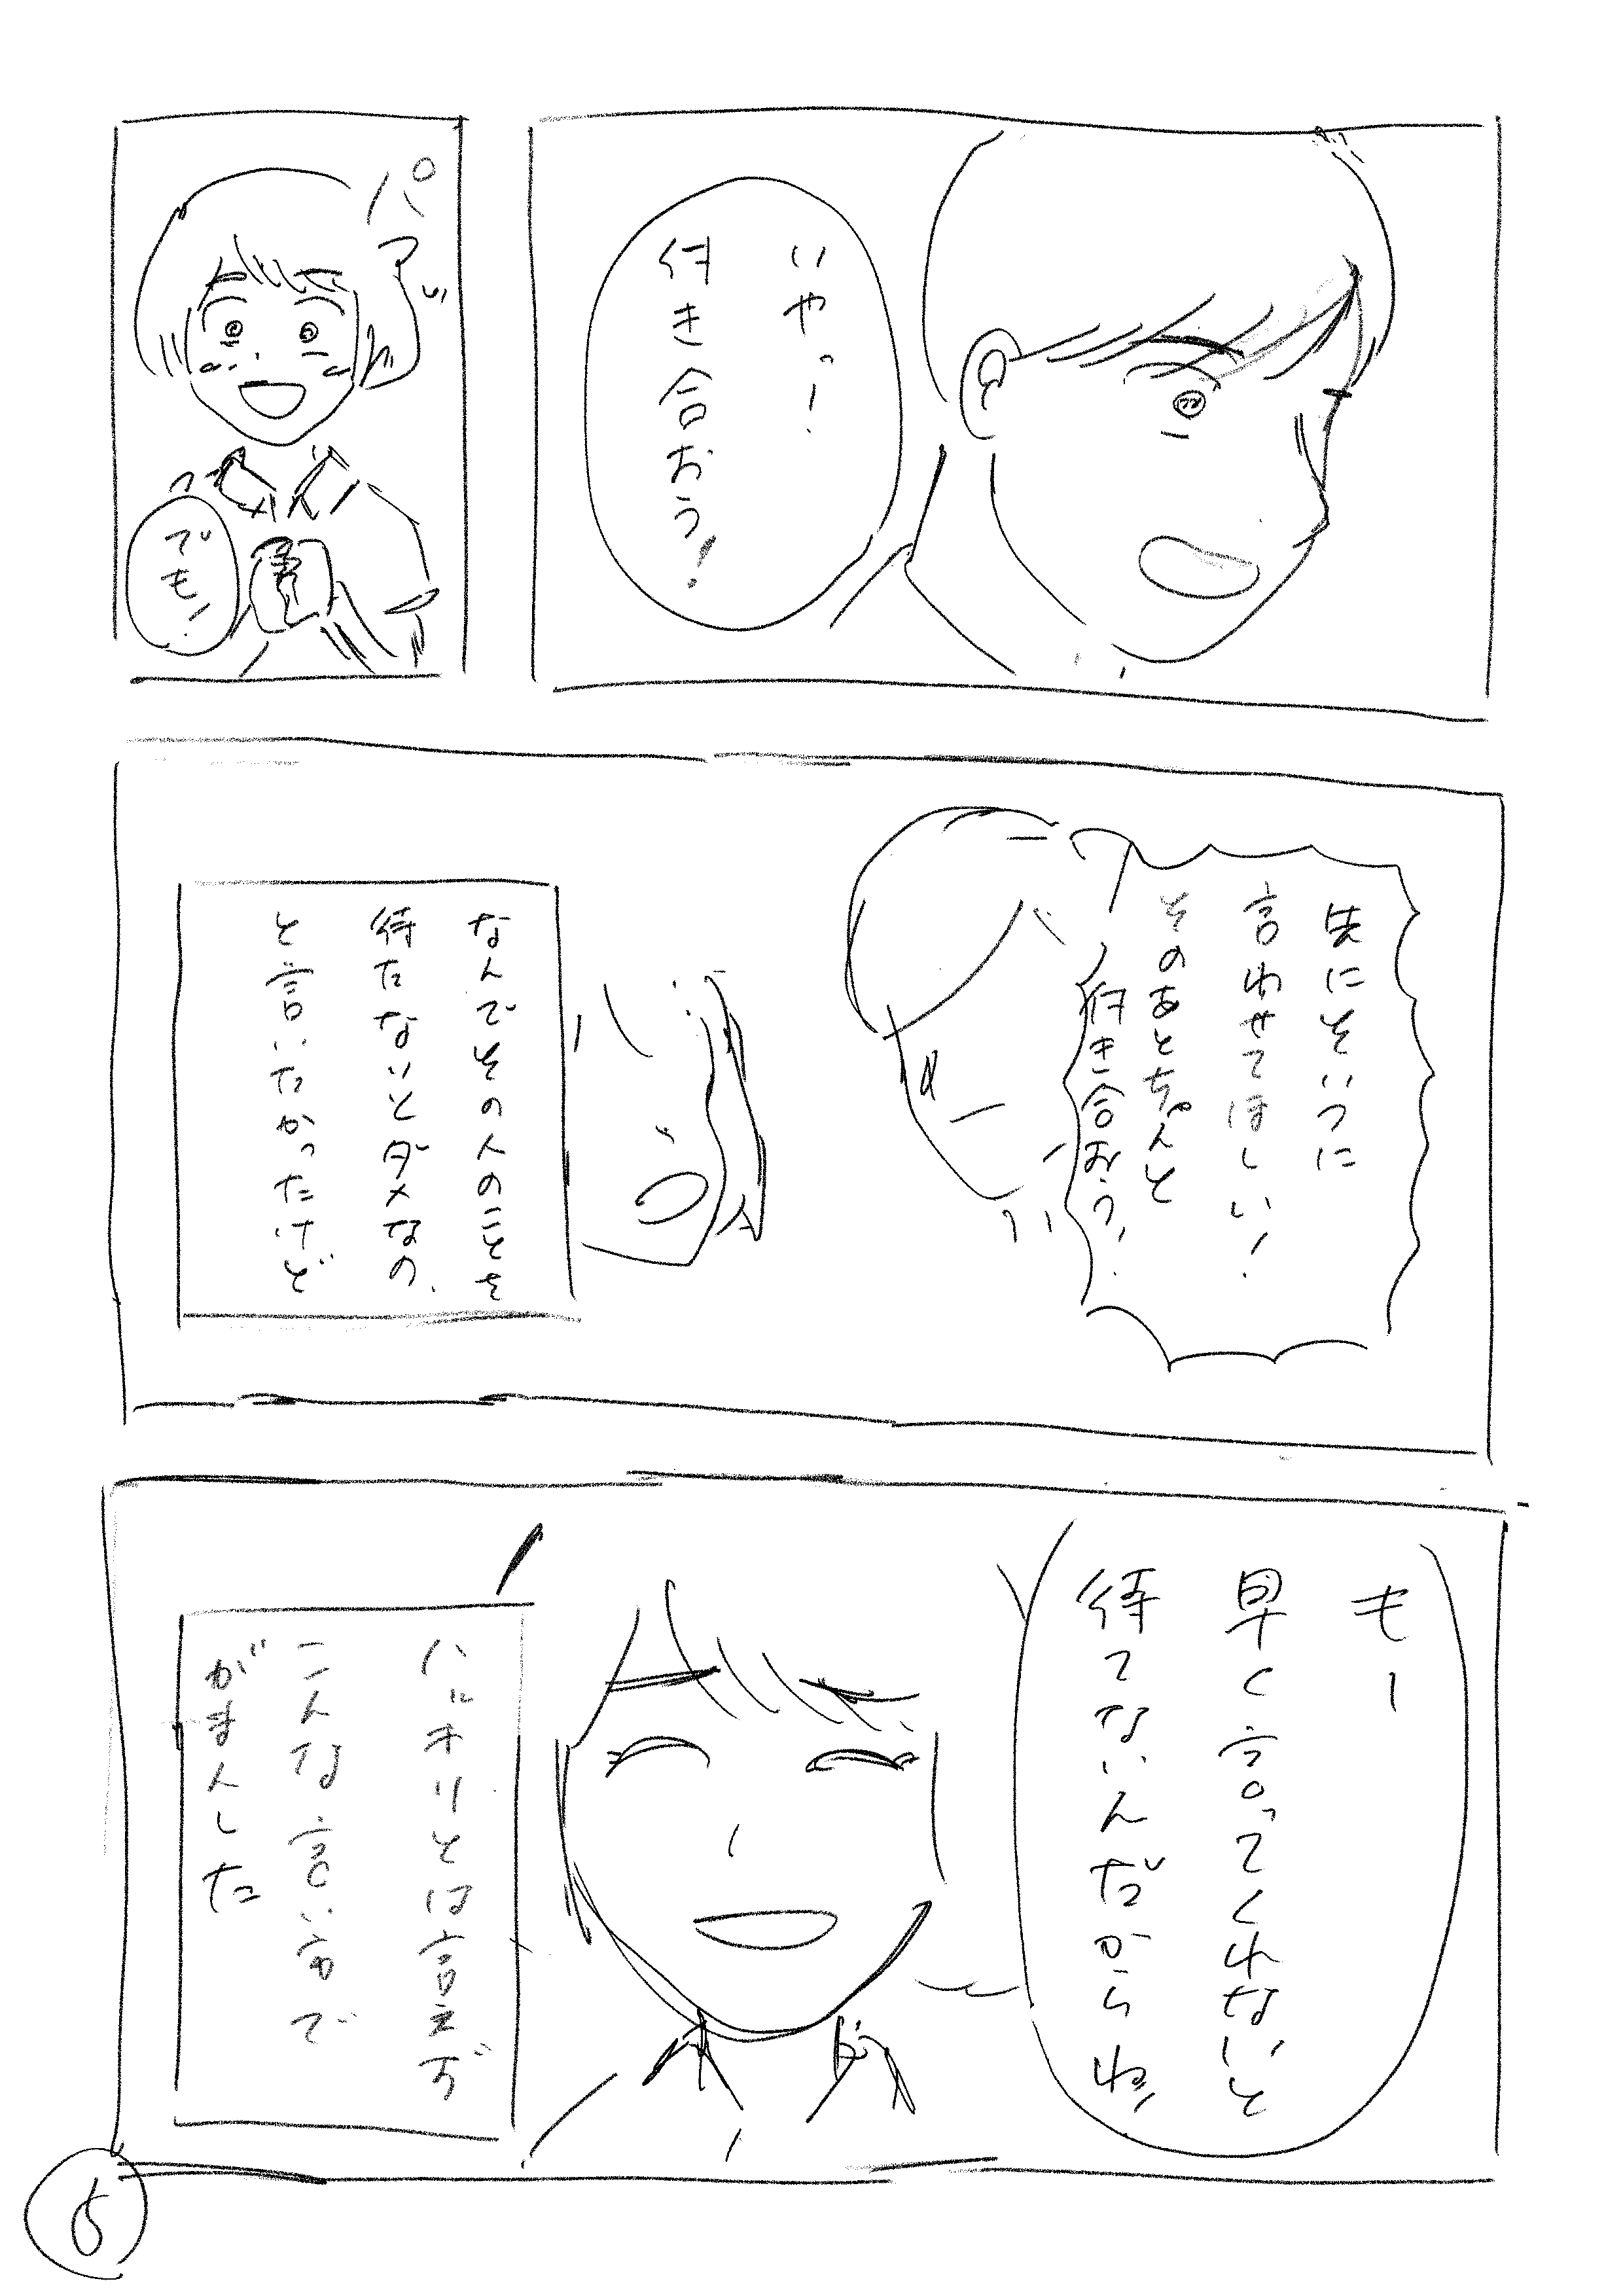 いやっ!
付き合おう!
パアッ
でも!
先にそいつに
言わせてほしい!
そのあとちゃんと
付き合おう!
なんでその人のことを
待たないとダメなの
と言いたかったけど
もー
早く言ってくれないと
待てないんだからね!
ハッキリとは言えず
こんな言い方で
がまんした